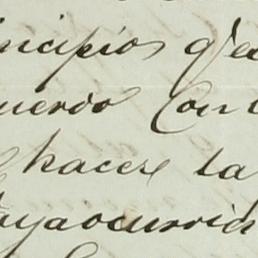 ncipios q'e
uerdo Con
hacer la
ayaocurrid